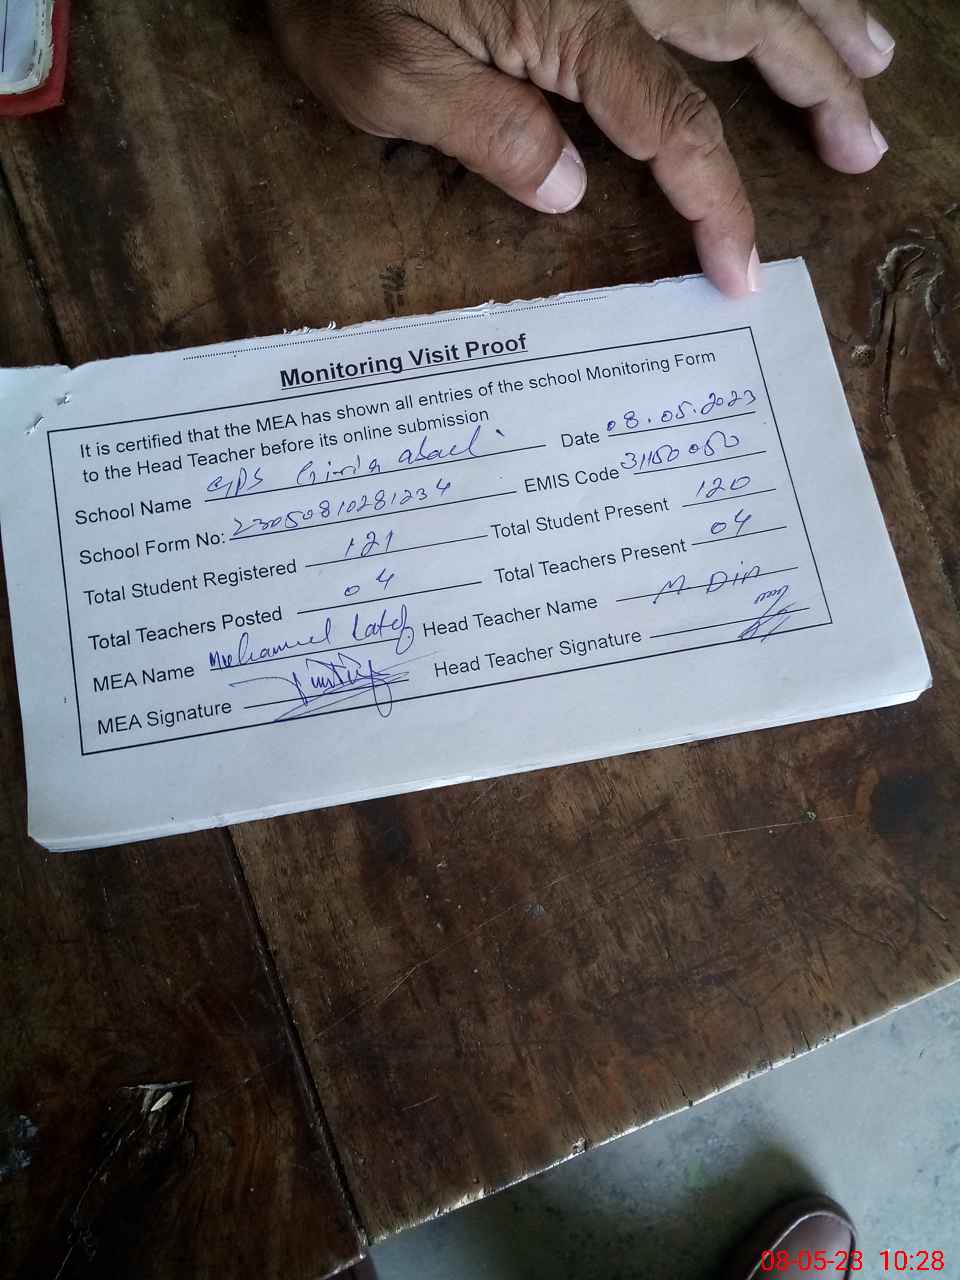 Monitoring Visit Proof
It is certified that the MEA has shown all entries of the school Monitoring Form
to the Head Teacher before its online submission
School Name GPS abad Date 08.05.2023
School Form No: 23050810281234 EMIS Code 31150050
Total Student Registered 121 Total Student Present 120
Total Teachers Posted 04 Total Teachers Present 04
MEA Name Muhammad Latef Head Teacher Name M Din
MEA Signature Head Teacher Signature
08-05-23 10:28